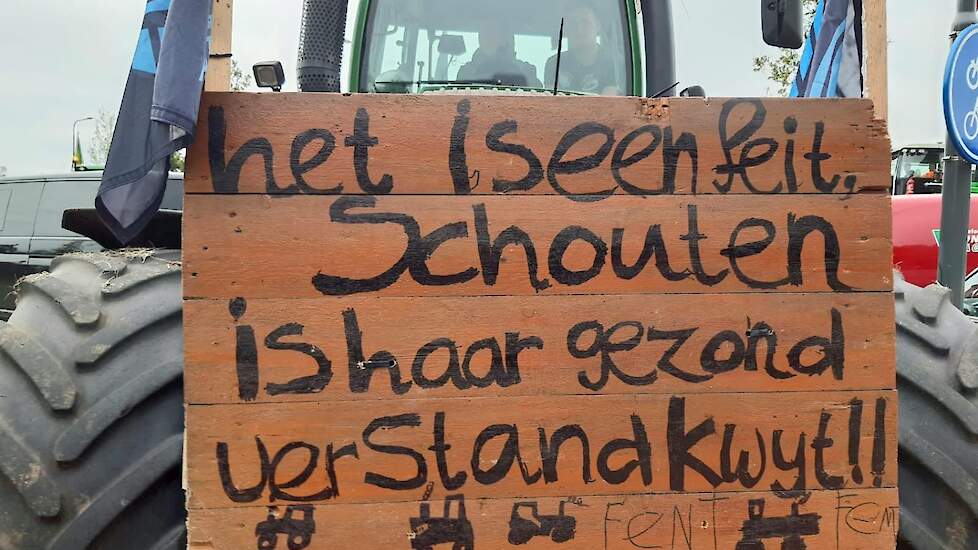 het is een feit,
Schouten
is haar gezond
verstand kwyt!!
FENT FENT